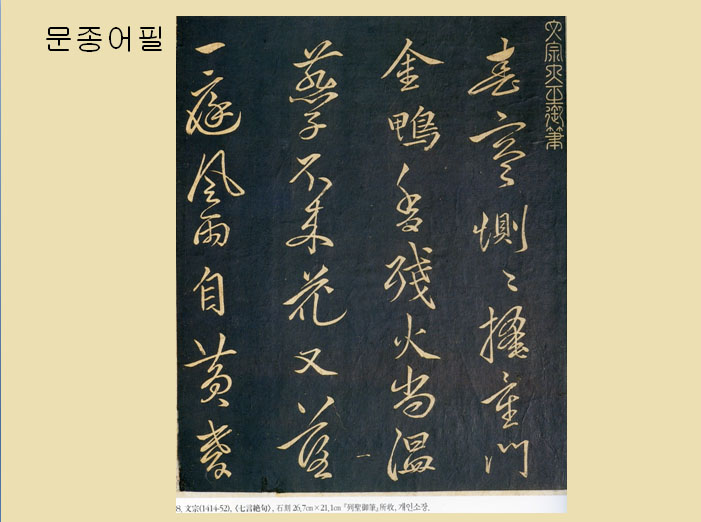 문종어필
文宗大王御筆
春寒惻〻掩重門
金鴨香殘火尚溫
燕子不來花又落
一庭風雨自黃昏
8. 文宗(1414-52), 〈七言絶句〉, 石刻 26.7cm×21.1cm 『列聖御筆』所收, 개인소장.